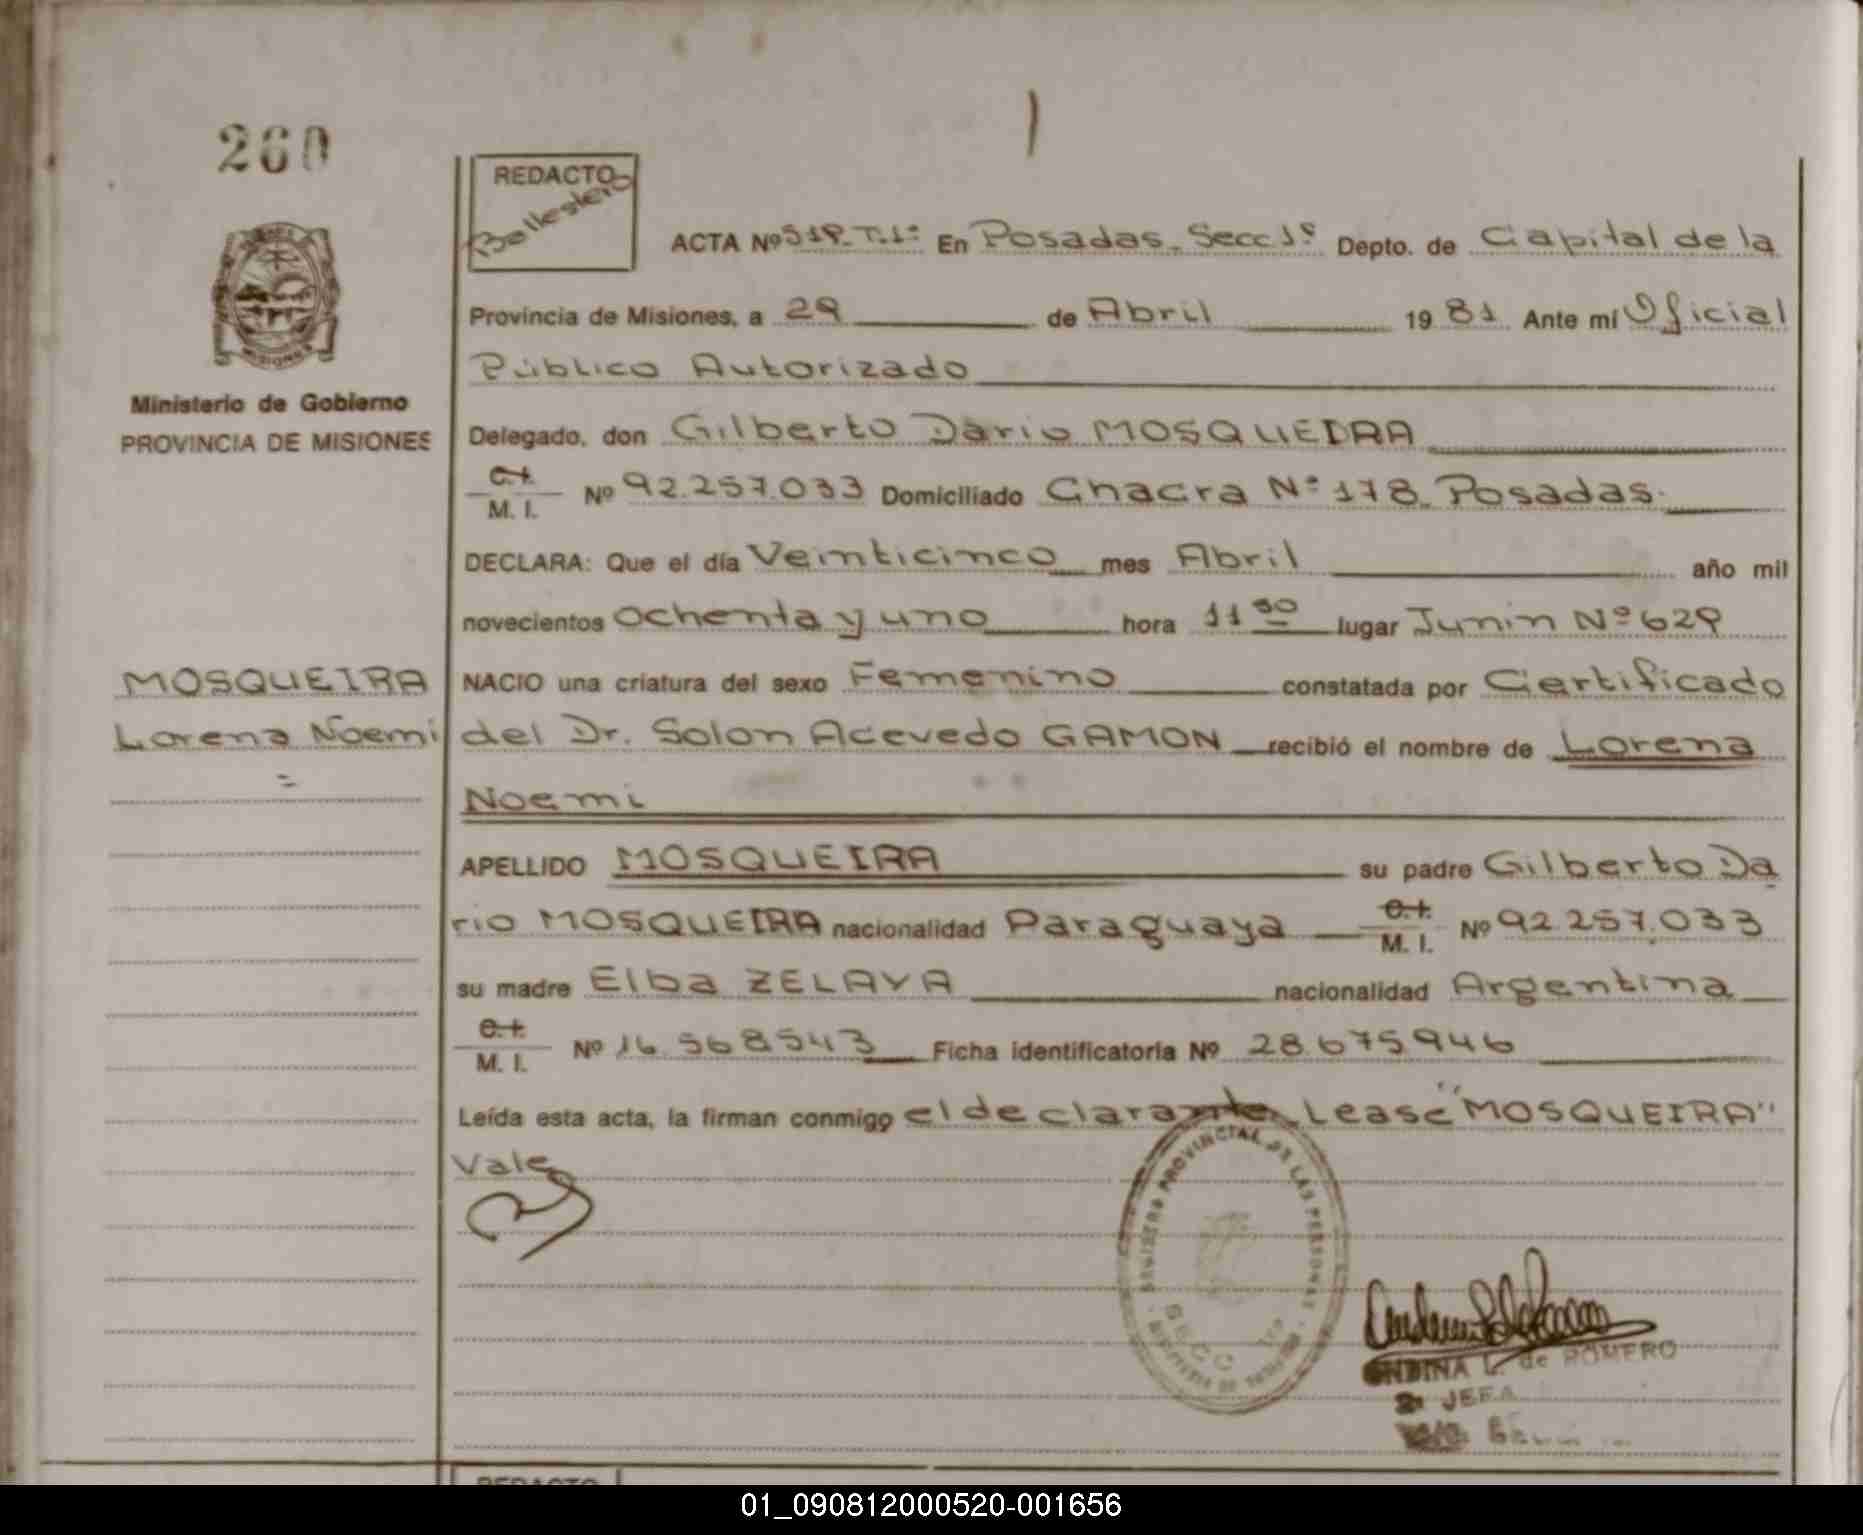 260
REDACTO
Ballestero
ACTA Nº 519 T.1º En Posadas. Secc 1º Depto. de Capital de la
Provincia de Misiones, a 29 de Abril 19 81 Ante mí Oficial
Público Autorizado
Ministerio de Gobierno
PROVINCIA DE MISIONES
Delegado, don Gilberto Dario MOSQUEDRA
C.I.
M. I. Nº 92.257.033 Domiciliado Chacra Nº 178 Posadas.
DECLARA: Que el día Veinticinco mes Abril año mil
novecientos Ochenta y uno hora 11 30 lugar Junin Nº 629
MOSQUEIRA
Lorena Noemi
NACIO una criatura del sexo Femenino constatada por Certificado
del Dr. Solon Acevedo GAMON recibió el nombre de Lorena
Noemi
APELLIDO MOSQUEIRA su padre Gilberto Da
rio MOSQUEIRA nacionalidad Paraguaya C.I. M. I. Nº 92.257.033
su madre Elba ZELAYA nacionalidad Argentina
C.I.
M. I. Nº 16.568543 Ficha identificatoria Nº 28.675946
Leída esta acta, la firman conmigo el declarante, Lease "MOSQUEIRA"
Vale
REGISTRO PROVINCIAL DE LAS PERSONAS
SECC 1ra
L. de ROMERO
JEFA
REDACTO
01_090812000520-001656